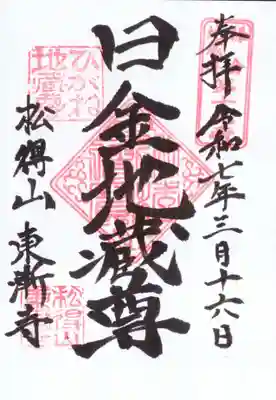 奉拝 令和七年三月十六日
日金地蔵尊
ひがね
地蔵尊
松得山 東漸寺